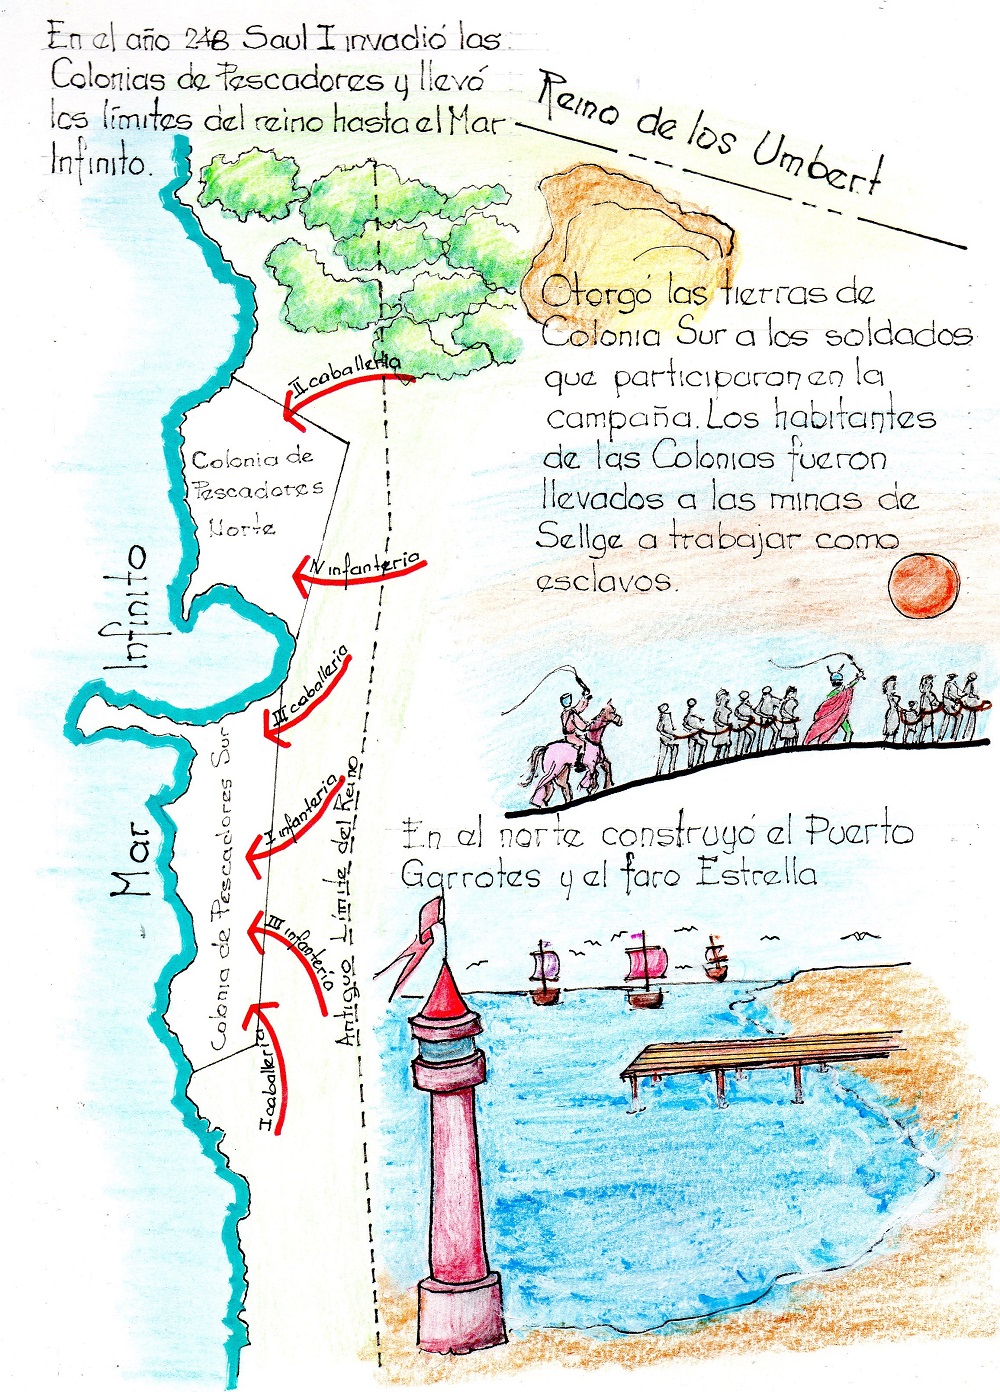 En el año 248 Saul I invadió las
Colonias de Pescadores y llevó
los límites del reino hasta el Mar
Infinito.
Reino de los Umbert
Otorgó las tierras de
Colonia Sur a los soldados
que participaron en la
campaña. Los habitantes
de las Colonias fueron
llevados a las minas de
Sellge a trabajar como
esclavos.
II caballería
Colonia de
Pescadores
Norte
IV infantería
Mar Infinito
III caballería
I infantería
Colonia de Pescadores Sur
Antiguo Límite del Reino
III infantería
I caballería
En el norte construyó el Puerto
Garrotes y el faro Estrella